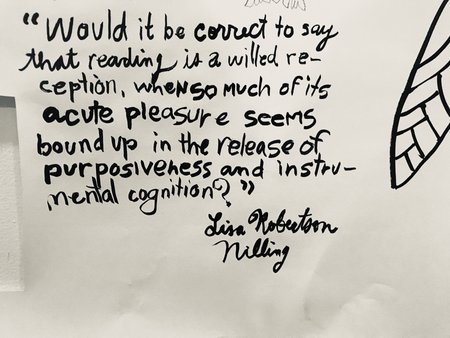 "Would it be correct to say
that reading is a willed re-
ception, when so much of its
acute pleasure seems
bound up in the release of
purposiveness and instru-
mental cognition?"
Lisa Robertson
Nilling